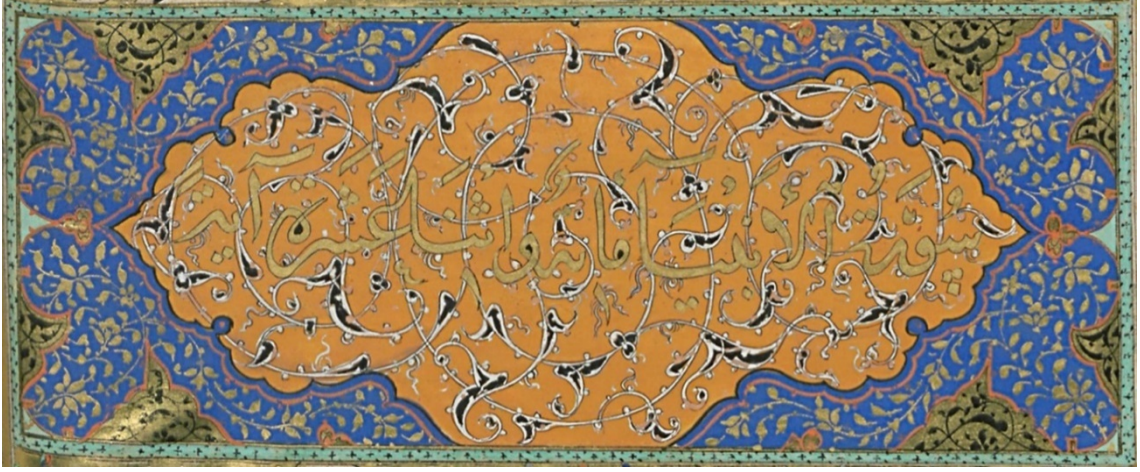 سُورَةُ الْأَنْبِيَآ مِائَةٌ وَاثْنَتَا عَشْرَةَ آيَةً